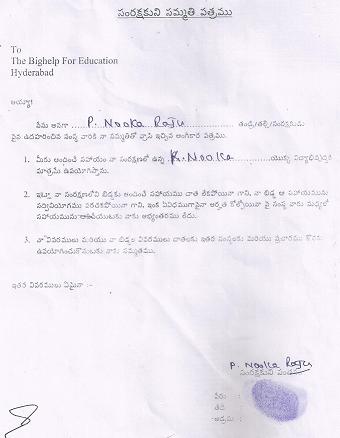 సంరక్షకుని సమ్మతి పత్రము
To
The Bighelp For Education
Hyderabad
అయ్యా!
నేను అనగా P. Nooka Raju తండ్రి/తల్లి/సంరక్షకుడు
పైన ఉదహరించిన సంస్థ వారికి నా సమ్మతితో వ్రాసి ఇచ్చిన అంగీకార పత్రము.
1. మీరు అందించే సహాయం నా సంరక్షణలో ఉన్న K. Nooka యొక్క విద్యాభివృద్ధికి
మాత్రమే ఉపయోగిస్తాను.
2. ఇట్లా నా సంరక్షణలోని బిడ్డకు అందించే సహాయము చాత లేకపోయినా గాని, నా బిడ్డ ఆ సహాయమును
సద్వినియోగము పరచకపోయినా గాని, ఇంక ఏవిధముగానైనా అర్హత కోల్పోయినా పై సంస్థ వారు మధ్యలో
సహాయమును ఆపివేయుటకు నాకు అభ్యంతరము లేదు.
3. నా వివరములు మరియు నా బిడ్డల వివరములు దాతలకు ఇతర సంస్థలకు మరియు ప్రచారము కొరకు
ఉపయోగించుకొనుటకు నాకు సమ్మతము.
ఇతర వివరములు ఏమైనా :-
P. Nooka Raju
సంరక్షకుని
పేరు :
తేది
అడ్రసు :